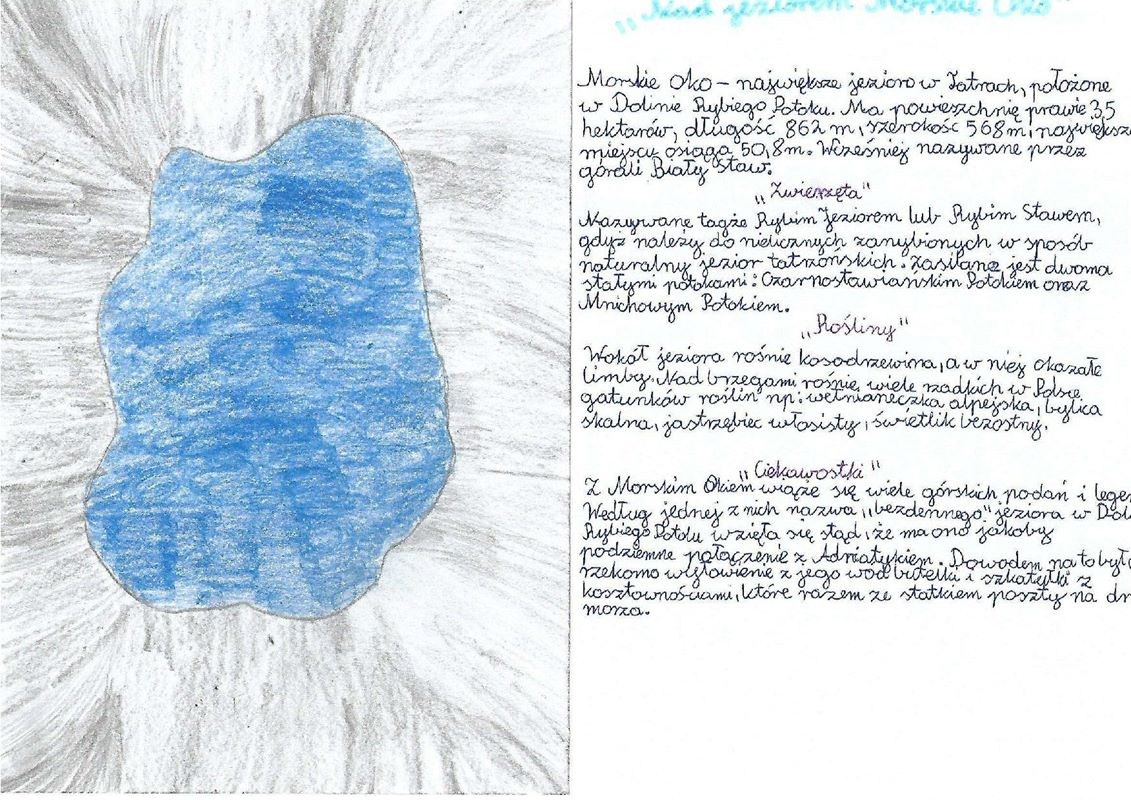 „Nad jeziorem Morskie Oko"
Morskie Oko – największe jezioro w Tatrach, położone
w Dolinie Rybiego Potoku. Ma powieszchnię prawie 35
hektarów, długość 862 m, szerokość 568 m, największ
miejscu osiąga 50,8m. Wcześniej nazywane przez
górali Biały Staw.
„Zwierzęta"
Nazywane tagże Rybim Jeziorem lub Rybim Stawem,
gdyż należy do nielicznych zarybionych w sposób
naturalny jezior tatrzońskich. Zasilane jest dwoma
stałymi potokami: Czarnostawiańskim Potokiem oraz
Mnichowym Potokiem.
„Rośliny"
Wokół jeziora rośnie kosodrzewina, a w niej okazałe
limby. Nad brzegami rośnie wiele rzadkich w Polsce
gatunków roślin np: wełnianeczka alpejska, bylica
skalna, jastrzębiec włosisty, świetlik bezostny.
„Ciekawostki"
Z Morskim Okiem wiąże się wiele górskich podań i lege
Według jednej z nich nazwa „bezdennego" jeziora w Dol
Rybiego Potoku wzięła się stąd, że ma ono jakoby
podziemne połączenie z Adriatykiem. Dowodem na to był
rzekomo wyłowienie z jego wód butelki i szkatułki z
kosztownościami, które razem ze statkiem poszły na dn
morza.